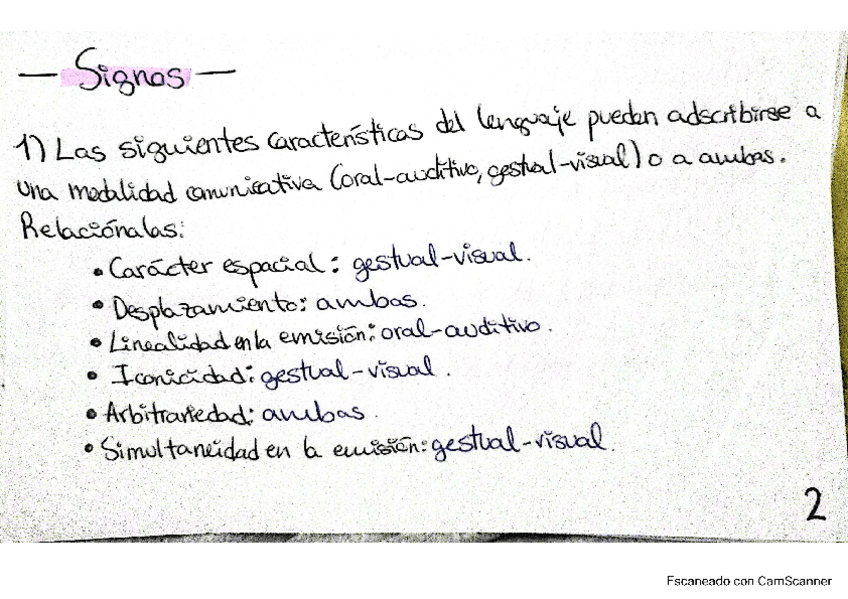 — Signos —
1) Las siguientes características del lenguaje pueden adscribirse a
una modalidad comunicativa (oral-auditivo, gestual-visual) o a ambas.
Relaciónalas:
• Carácter espacial: gestual-visual.
• Desplazamiento: ambas.
• Linealidad en la emisión: oral-auditivo.
• Iconicidad: gestual-visual.
• Arbitrariedad: ambas.
• Simultaneidad en la emisión: gestual-visual.
2
Escaneado con CamScanner